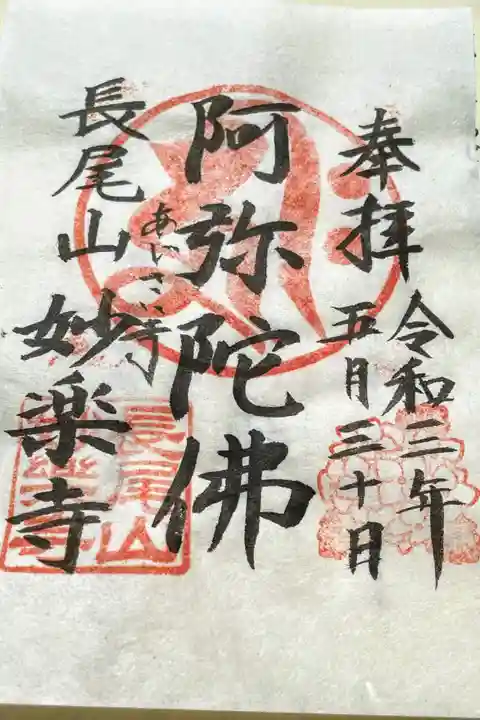 奉拝
令和三年
五月三十日
阿弥陀佛
長尾山
あじさい寺
妙楽寺
長尾山